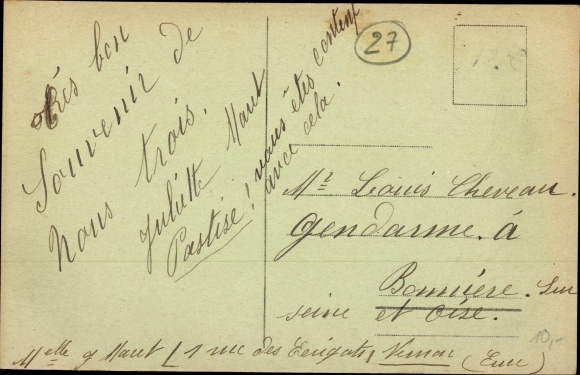 27
très bon
Souvenir de
nous trois.
Juliette Maret
Pastise! vous êtes content
avec cela.
Mr Louis Cheveau.
Gendarme. à
Bonnière. Sur
seine et Oise.
Melle J Maret 1 rue des Vernon (Eure)
10,-